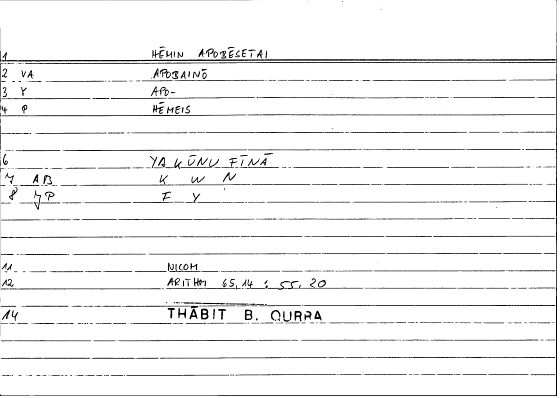 1 HĒMIN APOBĒSETAI
2 VA APOBAINŌ
3 Y APO-
4 P HĒMEIS
6 YAKŪNU FĪNĀ
7 AB K W N
8 JP F Y
11 NICOM
12 ARITHM 65,14 : 55,20
14 THĀBIT B. QURRA